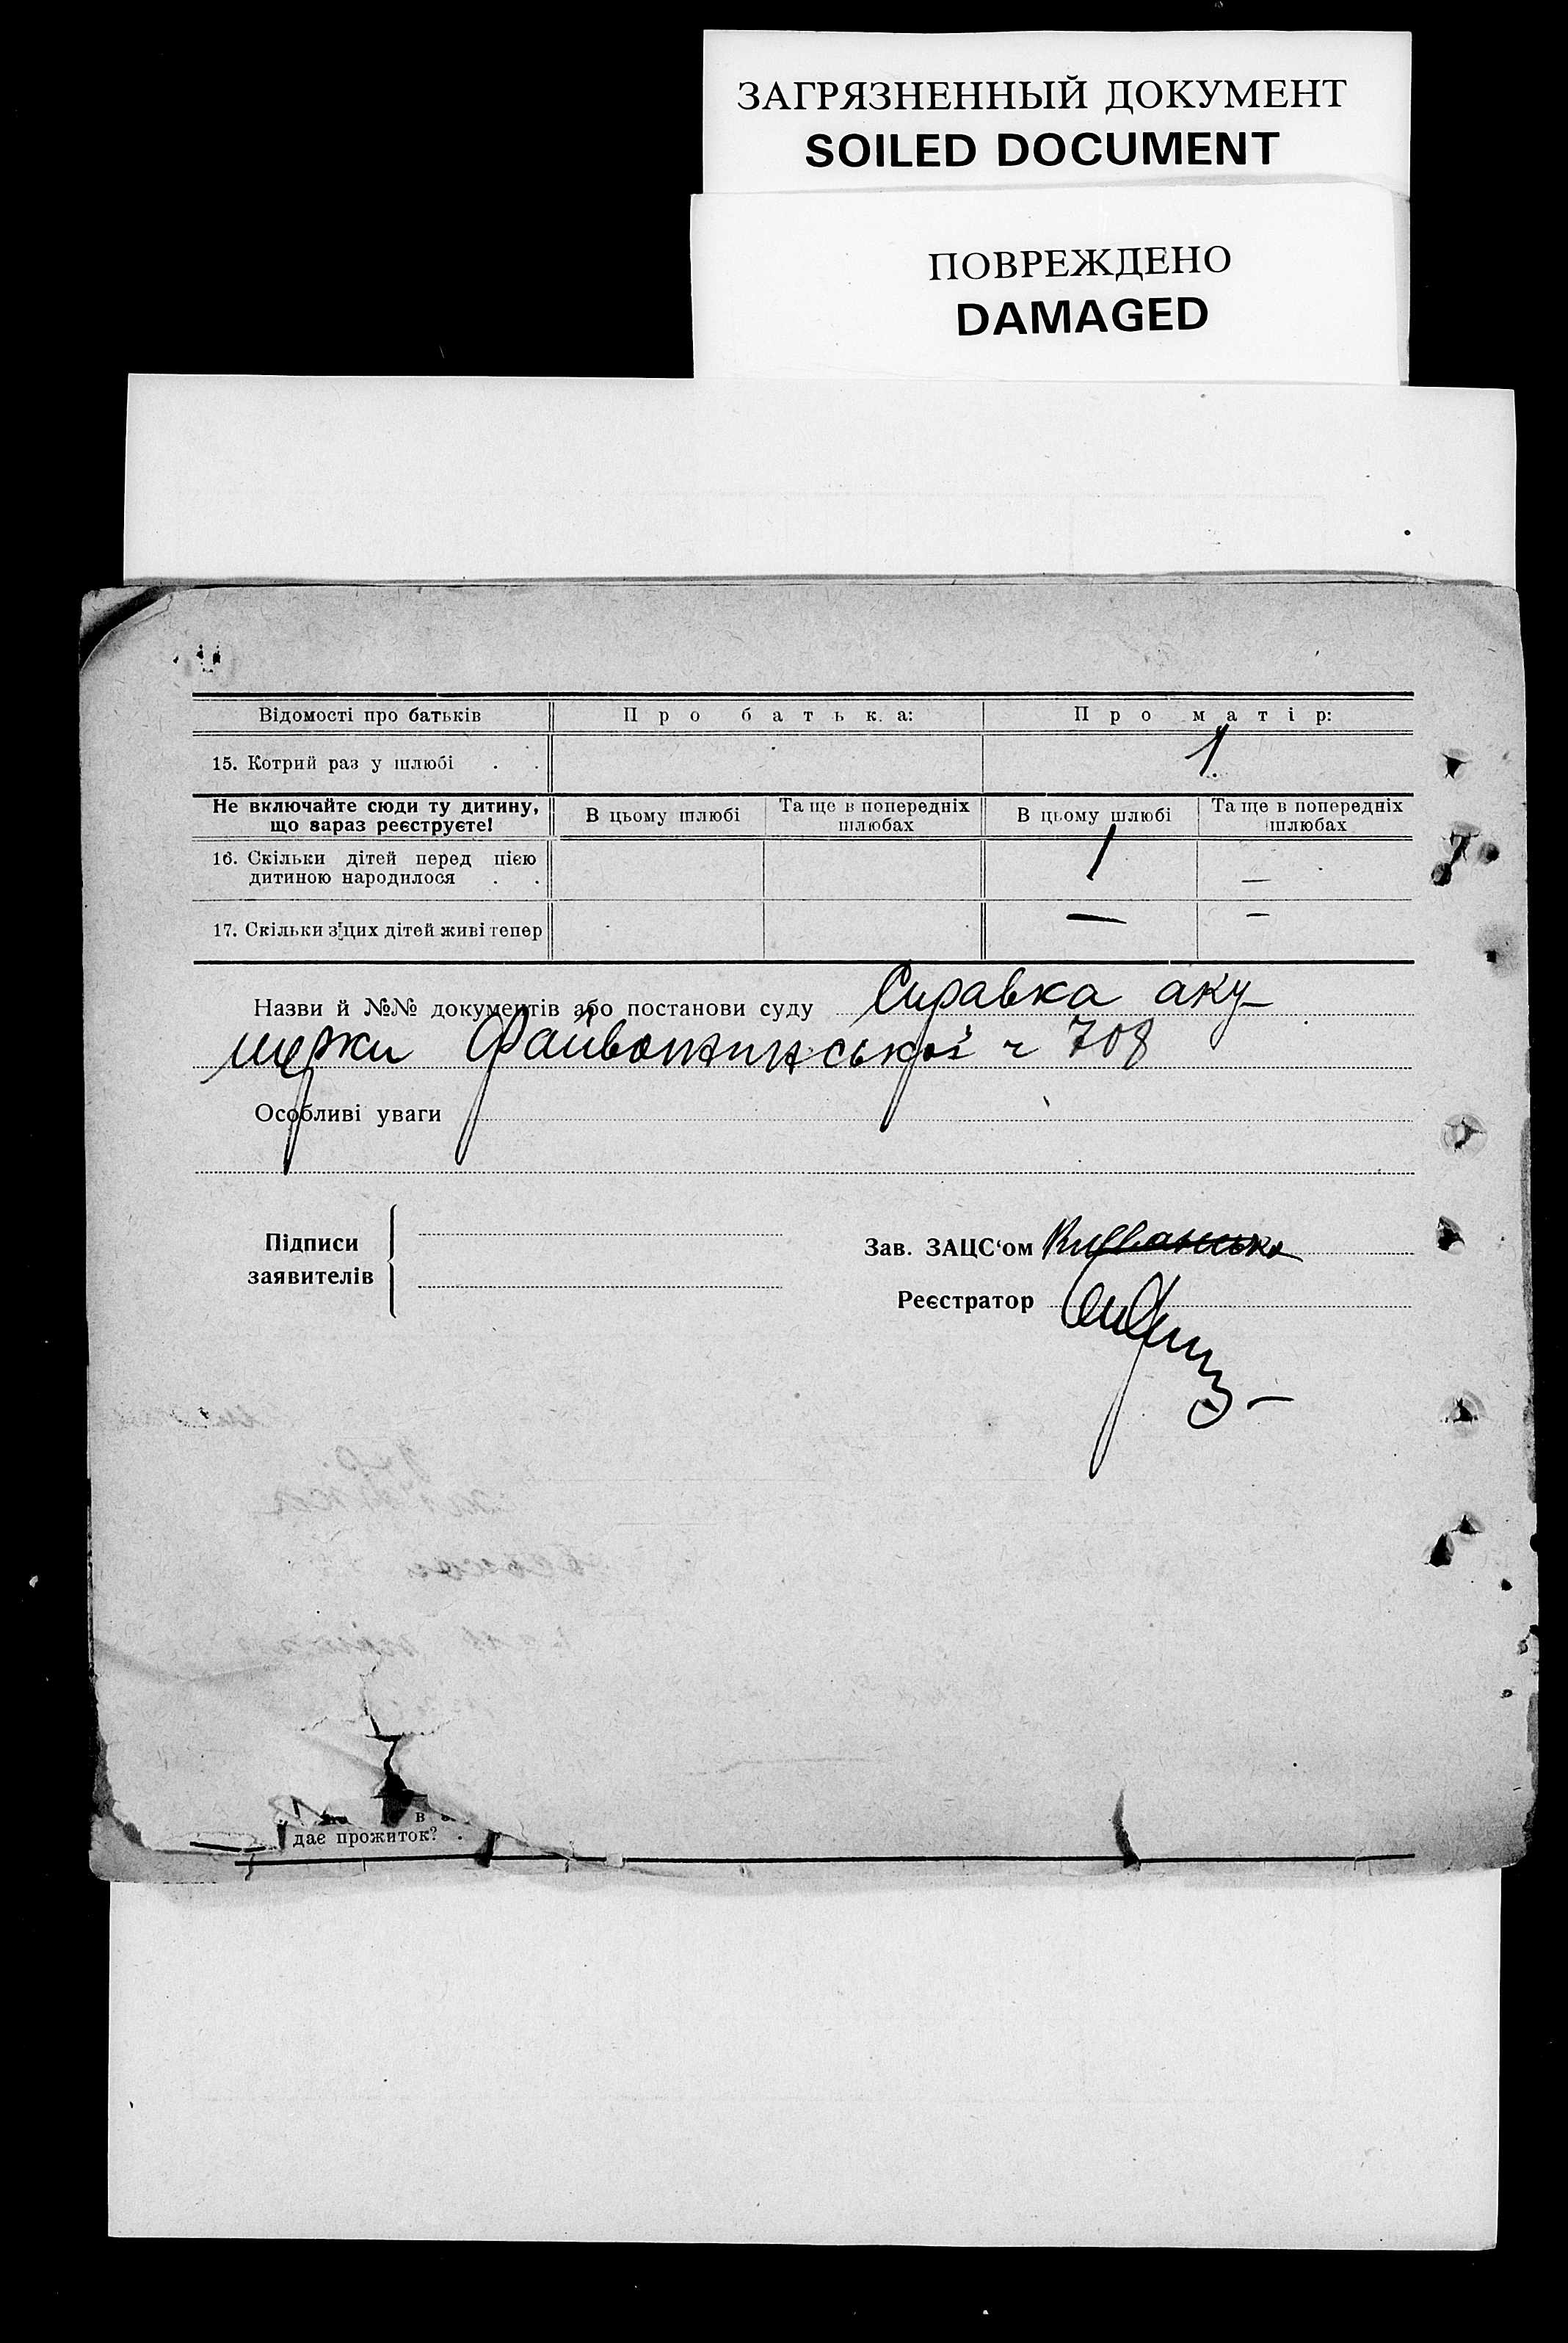 ЗАГРЯЗНЕННЫЙ ДОКУМЕНТ
SOILED DOCUMENT
ПОВРЕЖДЕНО
DAMAGED
Відомості про батьків Про батька: Про матір:
15. Котрий раз у шлюбі . . 1
Не включайте сюди ту дитину, що зараз реєструєте! В цьому шлюбі Та ще в попередніх шлюбах В цьому шлюбі Та ще в попередніх шлюбах
16. Скільки дітей перед цією
дитиною народилося . . 1 —
17. Скільки з цих дітей живі тепер — —
Назви й №№ документів або постанови суду Справка аку-
шерки ч 708
Особливі уваги
Підписи
заявителів
Зав. ЗАЦС‘ом
Реєстратор
в
дає прожиток? .